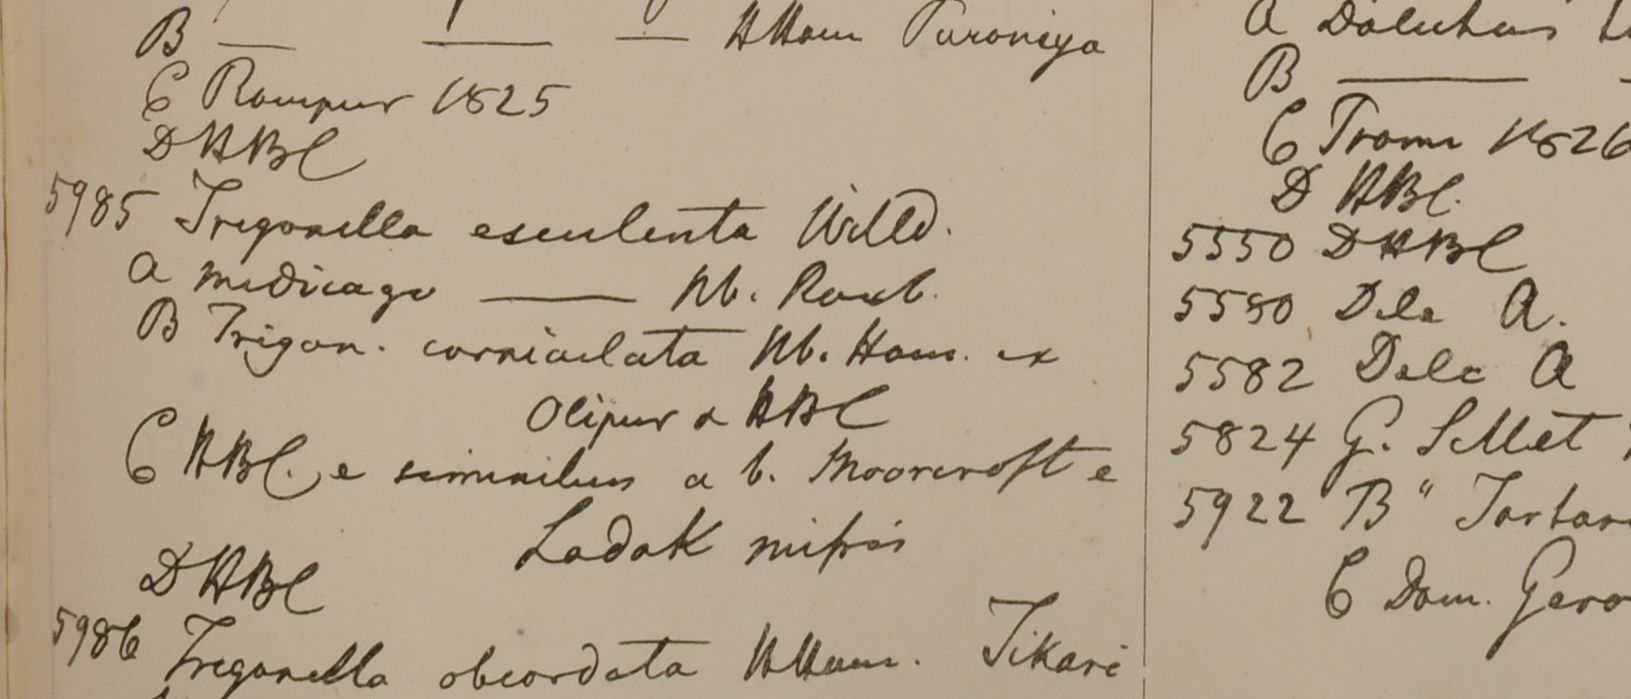 B — — — HHam Puroniya
C Rampur 1825
D HBC
5985 Trigonella esculenta Willd.
a Medicago — Hb. Roxb.
B Trigon. corniculata Hb. Ham. ex
Olipur & HBC
C HBC. e seminibus a b. Moorcroft e
Ladak missis
D HBC
5986 Trigonella obcordata HHam. Tikari
a Dolichus
B —
C Tromi 1826
D HBC.
5550 D HBC
5580 Dele A.
5582 Dele A
5824 G. Sillet
5922 B " Tartari
C Dom. Gero